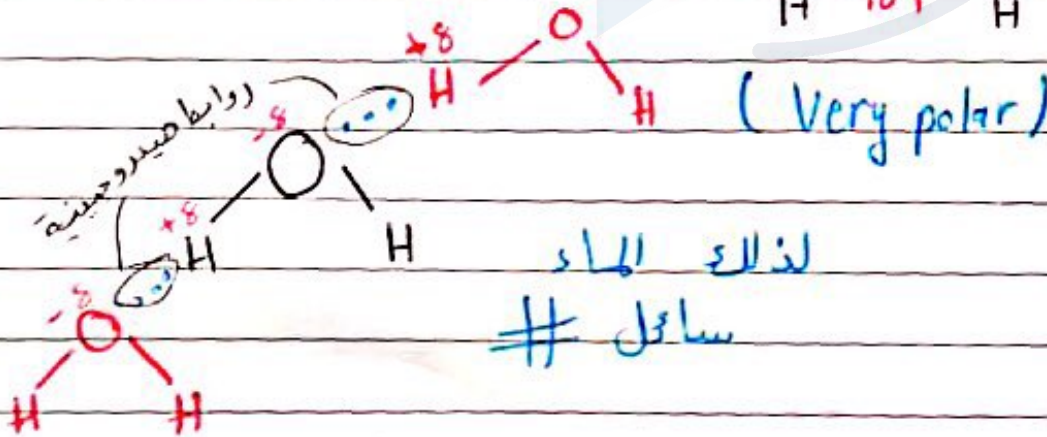 H 104 H
+δ
H O H
(Very polar)
روابط هيدروجينية
-δ
O
+δ
H H
لذلك الماء
سائل #
-δ
O
H H